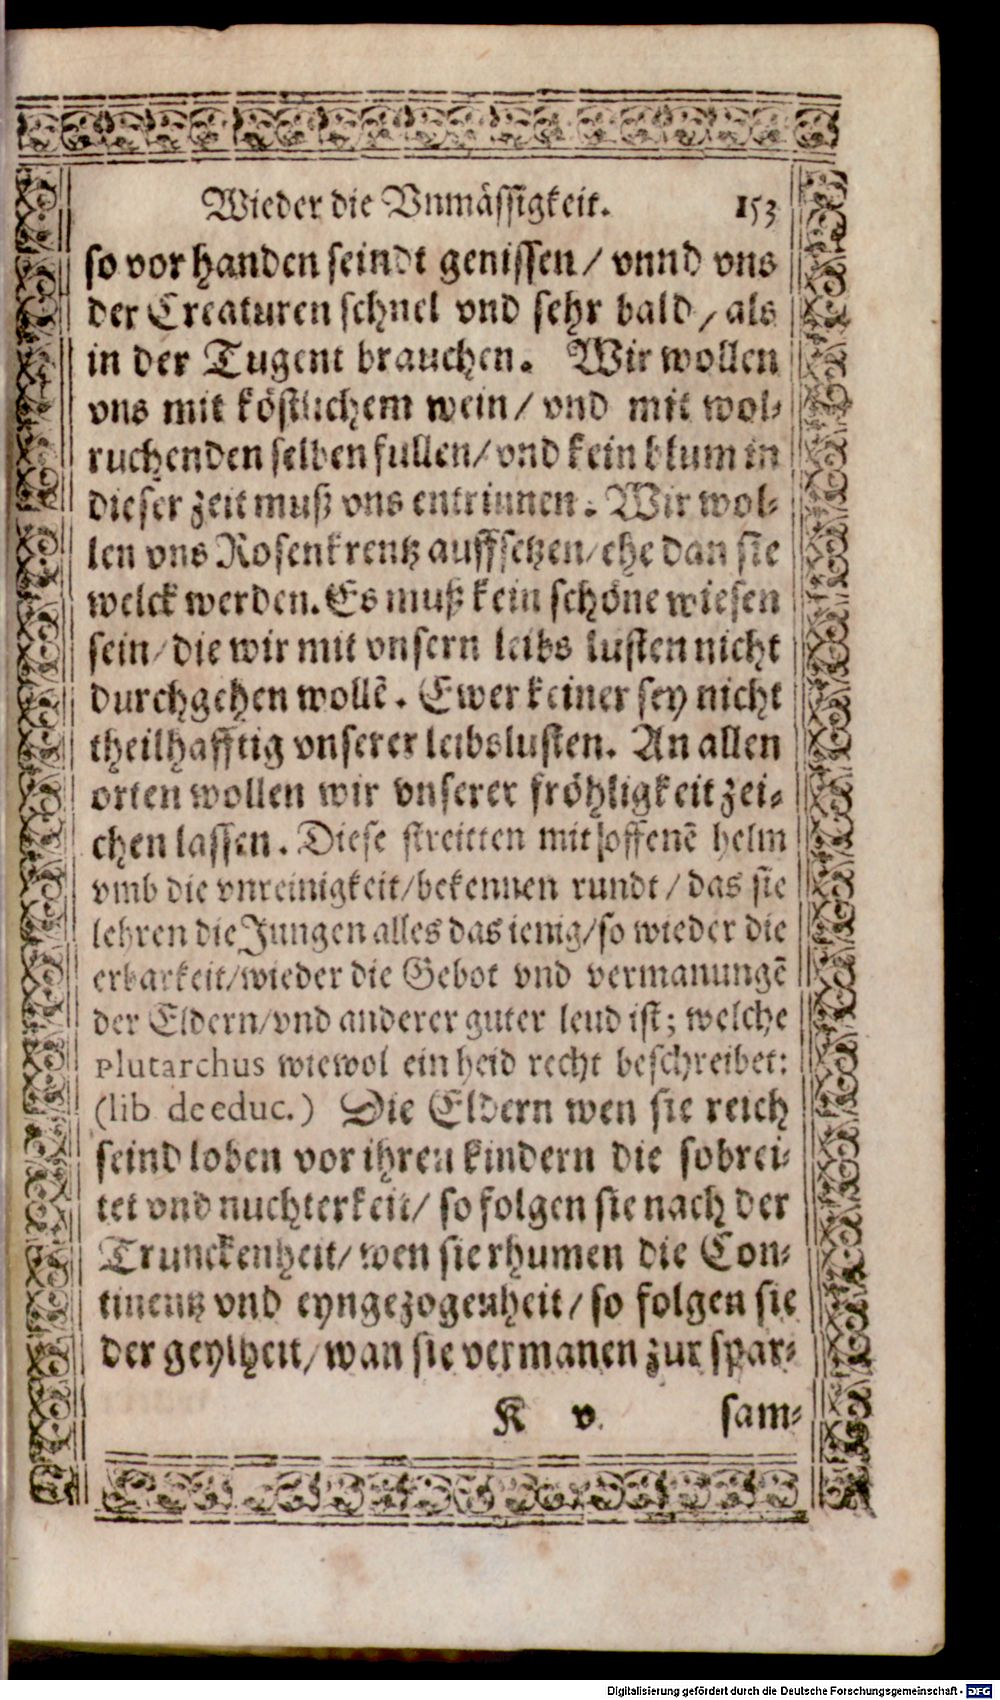 Wieder die Vnmässigkeit. 153
so vor handen seindt genissen / vnnd vns
der Creaturen schnel vnd sehr bald / als
in der Tugent brauchen. Wir wollen
vns mit köstlichem wein / vnd mit wol-
ruchenden selben fullen / vnd kein blum in
dieser zeit muß vns entrinnen. Wir wol-
len vns Rosenkrentz auffsetzen / ehe dan sie
welck werden. Es muß kein schöne wiesen
sein / die wir mit vnsern leibs lusten nicht
durchgehen wollē. Ewer keiner sey nicht
theilhafftig vnserer leibslusten. An allen
orten wollen wir vnserer fröhligkeit zei-
chen lassen. Diese streitten mit offenē helm
vmb die vnreinigkeit / bekennen rundt / das sie
lehren die Jungen alles das ienig / so wieder die
erbarkeit / wieder die Gebot vnd vermanungē
der Eldern / vnd anderer guter leud ist; welche
Plutarchus wiewol ein heid recht beschreibet:
(lib de educ.) Die Eldern wen sie reich
seind loben vor ihren kindern die sobrei-
tet vnd nuchterkeit / so folgen sie nach der
Trunckenheit / wen sie rhumen die Con-
tinentz vnd eyngezogenheit / so folgen sie
der geylheit / wan sie vermanen zur spar-
K v. sam-
Digitalisierung gefördert durch die Deutsche Forschungsgemeinschaft - DFG